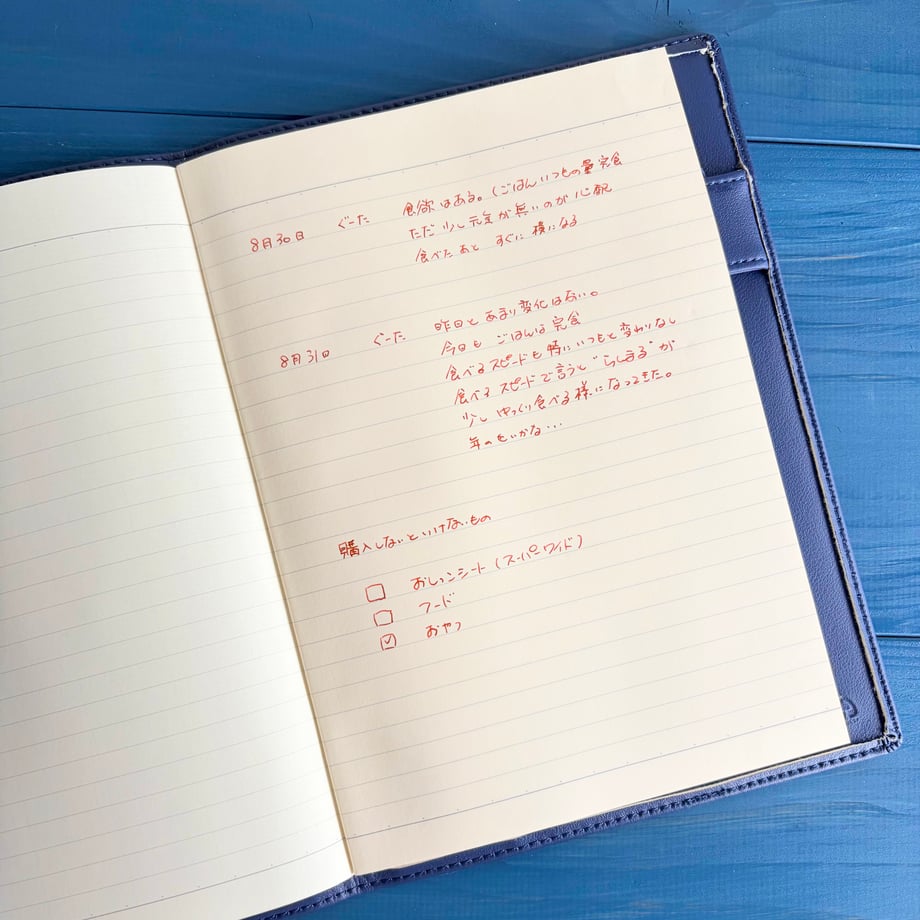 8月30日 ぐーた 食欲はある。(ごはんいつもの量完食
ただ少し元気が無いのが心配
食べたあと すぐに横になる
8月31日 ぐーた 昨日とあまり変化はない。
今日も ごはんは完食
食べるスピードも特にいつもと変わりなし
食べるスピードで言うと"らしまる"が
少しゆっくり食べる様になってきた。
年のせいかな...
購入しないといけないもの
☐ おしっこシート(スーパーワイド)
☐ フード
☑ おやつ